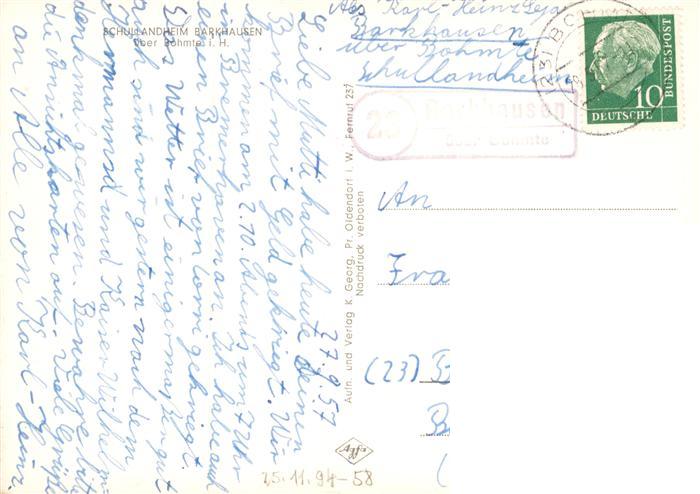 SCHULLANDHEIM BARKHAUSEN
über Bohmte i. H.
27.9.57
Liebe Mutti habe heute deinen
Brief mit Geld gekriegt. Wir
kommen am 2.10. Abends um 7 Uhr
in Bremerhaven an. Ich habe auch
einen Brief von gekriegt.
Das Wetter ist einigermaßen gut
auch sind wir gestern nach dem
Hermann und Kaiser Wilhelm-
denkmal gewesen. Bewahre bitte
die Ansichtskarten auf. Viele Grüße
an Alle von Karl-Heinz.
Aufn. und Verlag K. Georg, Pr. Oldendorf i. W. Fernruf 237
Nachdruck verboten
Agfa
25.11.94-58
Abs. Karl-Heinz
Barkhausen
über Bohmte
Schullandheim
23
Barkhausen
über Bohmte
DEUTSCHE
BUNDESPOST
10
An
Fra
(23)